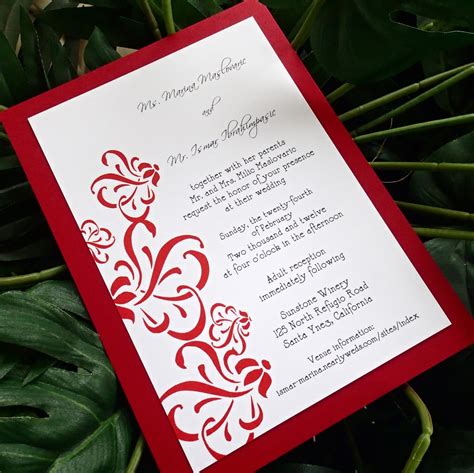 Ms. Marina Maslovaric
and
Mr. Ismar Ibrahimpasic
together with her parents
Mr. and Mrs. Milio Maslovario
request the honor of your presence
at their wedding
Sunday, the twenty-fourth
of February
Two thousand and twelve
at four o'clock in the afternoon
Adult reception
immediately following
Sunstone Winery
125 North Refugio Road
Santa Ynez, California
Venue information:
ismar-marina.nearlyweds.com/sites/index